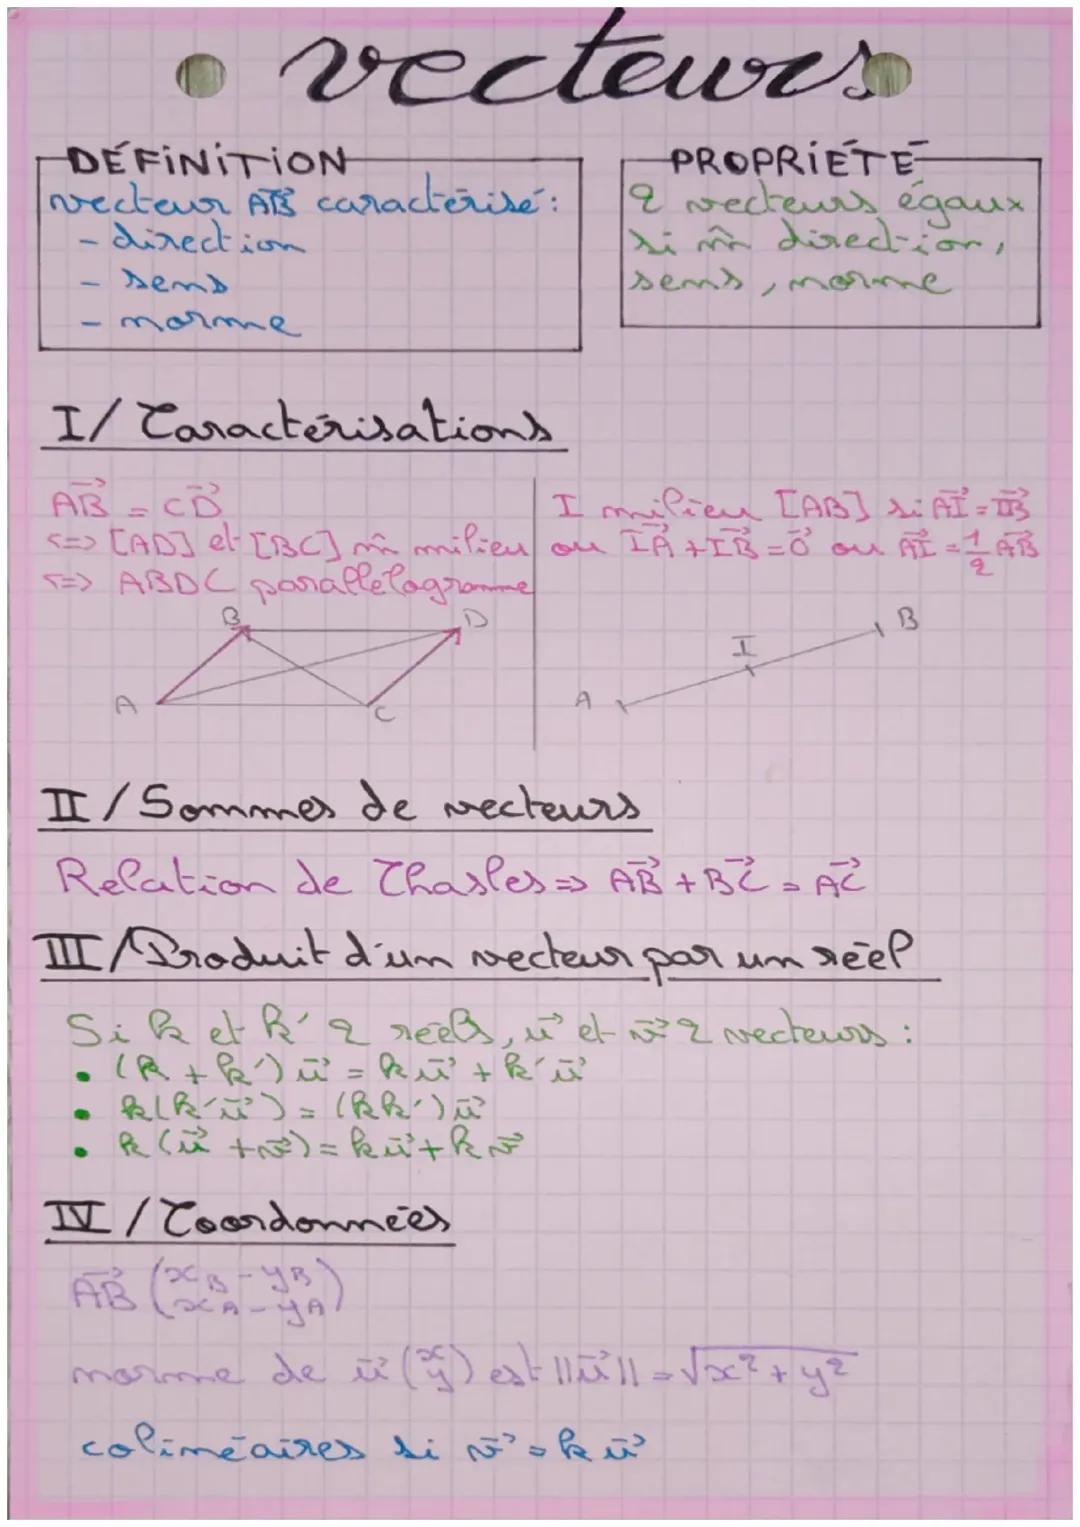 vecteurs
DÉFINITION
vecteur AB⃗ caractérisé :
- direction
- sens
- norme
PROPRIÉTÉ
2 vecteurs égaux
si m̂ direction,
sens, norme
I/ Caractérisations
AB⃗ = CD⃗
<=> [AD] et [BC] m̂ milieu
<=> ABDC parallélogramme
B D
A C
I milieu [AB] si AI⃗ = IB⃗
ou IA⃗ + IB⃗ = 0⃗ ou AI⃗ = 1/2 AB⃗
B
I
A
II / Sommes de vecteurs
Relation de Chasles => AB⃗ + BC⃗ = AC⃗
III/ Produit d'un vecteur par un réel
Si k et k' 2 réels, u⃗ et v⃗ 2 vecteurs :
• (k + k') u⃗ = k u⃗ + k' u⃗
• k(k' u⃗) = (kk') u⃗
• k (u⃗ + v⃗) = k u⃗ + k v⃗
IV / Coordonnées
AB⃗ (xB - yB
xA - yA)
norme de u⃗ (x y) est ||u⃗|| = √x² + y²
colinéaires si v⃗ = k u⃗